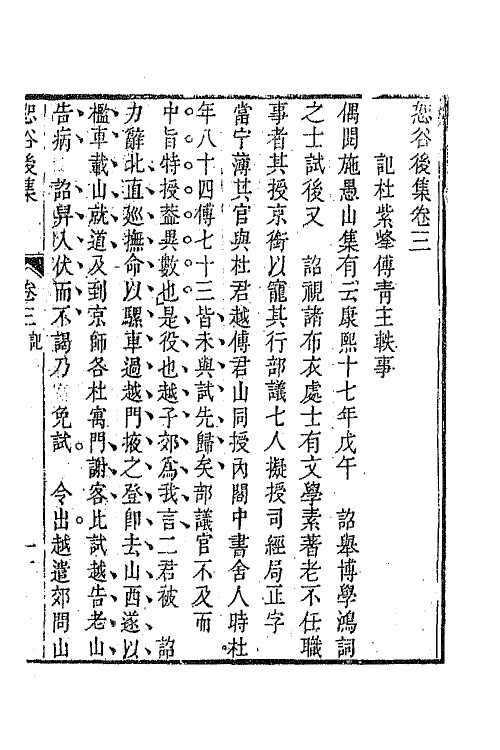 恕谷後集卷三
記杜紫峰傅青主軼事
偶閱施愚山集有云康熙十七年戊午　詔舉博學鴻詞
之士試後又　詔視諸布衣處士有文學素著老不任職
事者其授京銜以寵其行部議七人擬授司經局正字
當宁薄其官與杜君越傅君山同授內閣中書舍人時杜
年八十四傅七十三皆未與試先歸矣部議官不及而
中旨特授葢異數也是役也越子郊爲我言二君被　詔
力辭北直廵撫命以騾車過越門掖之登卽去山西遂以
檻車載山就道及到京師各杜寓門謝客比試越告老山
告病　詔舁入伏而不謁乃　免試　令出越遣郊問山
恕谷後集　卷三　記　一